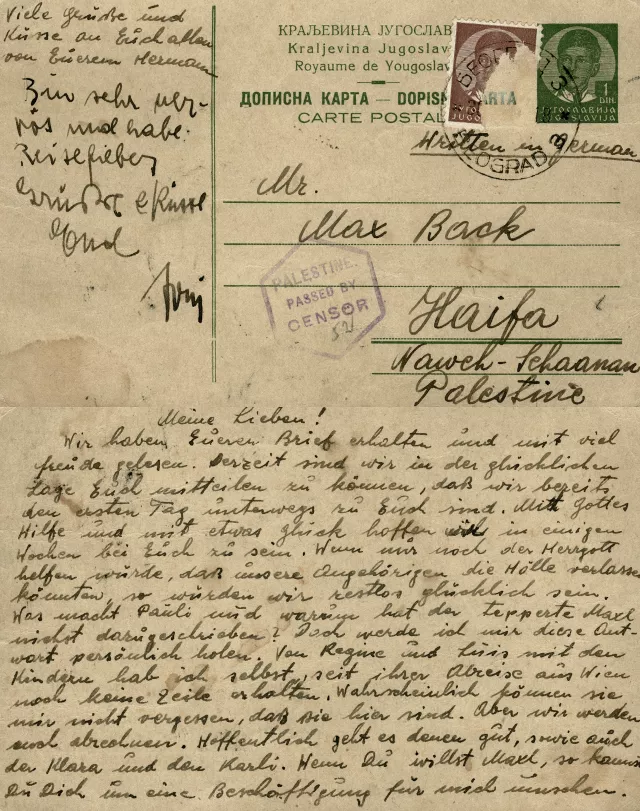 Viele Grüße und
Küsse an Euch allen
von Euerem Hermann
Bin sehr ner-
vös und habe
Reisefieber
Grüsse & Küsse
КРАЉЕВИНА ЈУГОСЛАВ
Kraljevina Jugoslav
Royaume de Yougoslav
ДОПИСНА КАРТА — DOPISN KARTA
CARTE POSTAL
1
DIN.
ЈУГОСЛАВИЈА
JUGOSLAVIJA
BEOGRAD 3
Written in German
Mr.
Max Back
Haifa
Naweh-Schaanan
Palestine
PALESTINE.
PASSED BY
CENSOR
52
Meine Lieben!
Wir haben Eueren Brief erhalten und mit viel
freude gelesen. Derzeit sind wir in der glücklichen
Lage Euch mitteilen zu können, daß wir bereits
den ersten Tag unterwegs zu Euch sind. Mit Gottes
Hilfe und mit etwas glück hoffen wir in einigen
Wochen bei Euch zu sein. Wenn mir noch der Herrgott
helfen würde, daß unsere Angehörigen die Hölle verlassen
könnten, so würden wir restlos glücklich sein.
Was macht Pauli und warum hat der tepperte Maxl
nichst dazugeschrieben? Doch werde ich mir diese Ant-
wort persönlich holen. Von Regine und Luis mit den
Kindern hab ich selbst, seit ihrer Abreise aus Wien
noch keine Zeile erhalten. Wahrscheinlich können sie
mir nicht vergessen, daß sie hier sind. Aber wir werden
noch abrechnen. Hoffentlich geht es denen gut, sowie auch
der Klara und den Karli. Wenn Du willst Maxl, so kannst
Du Dich um eine Beschäftigung für mich umsehen.